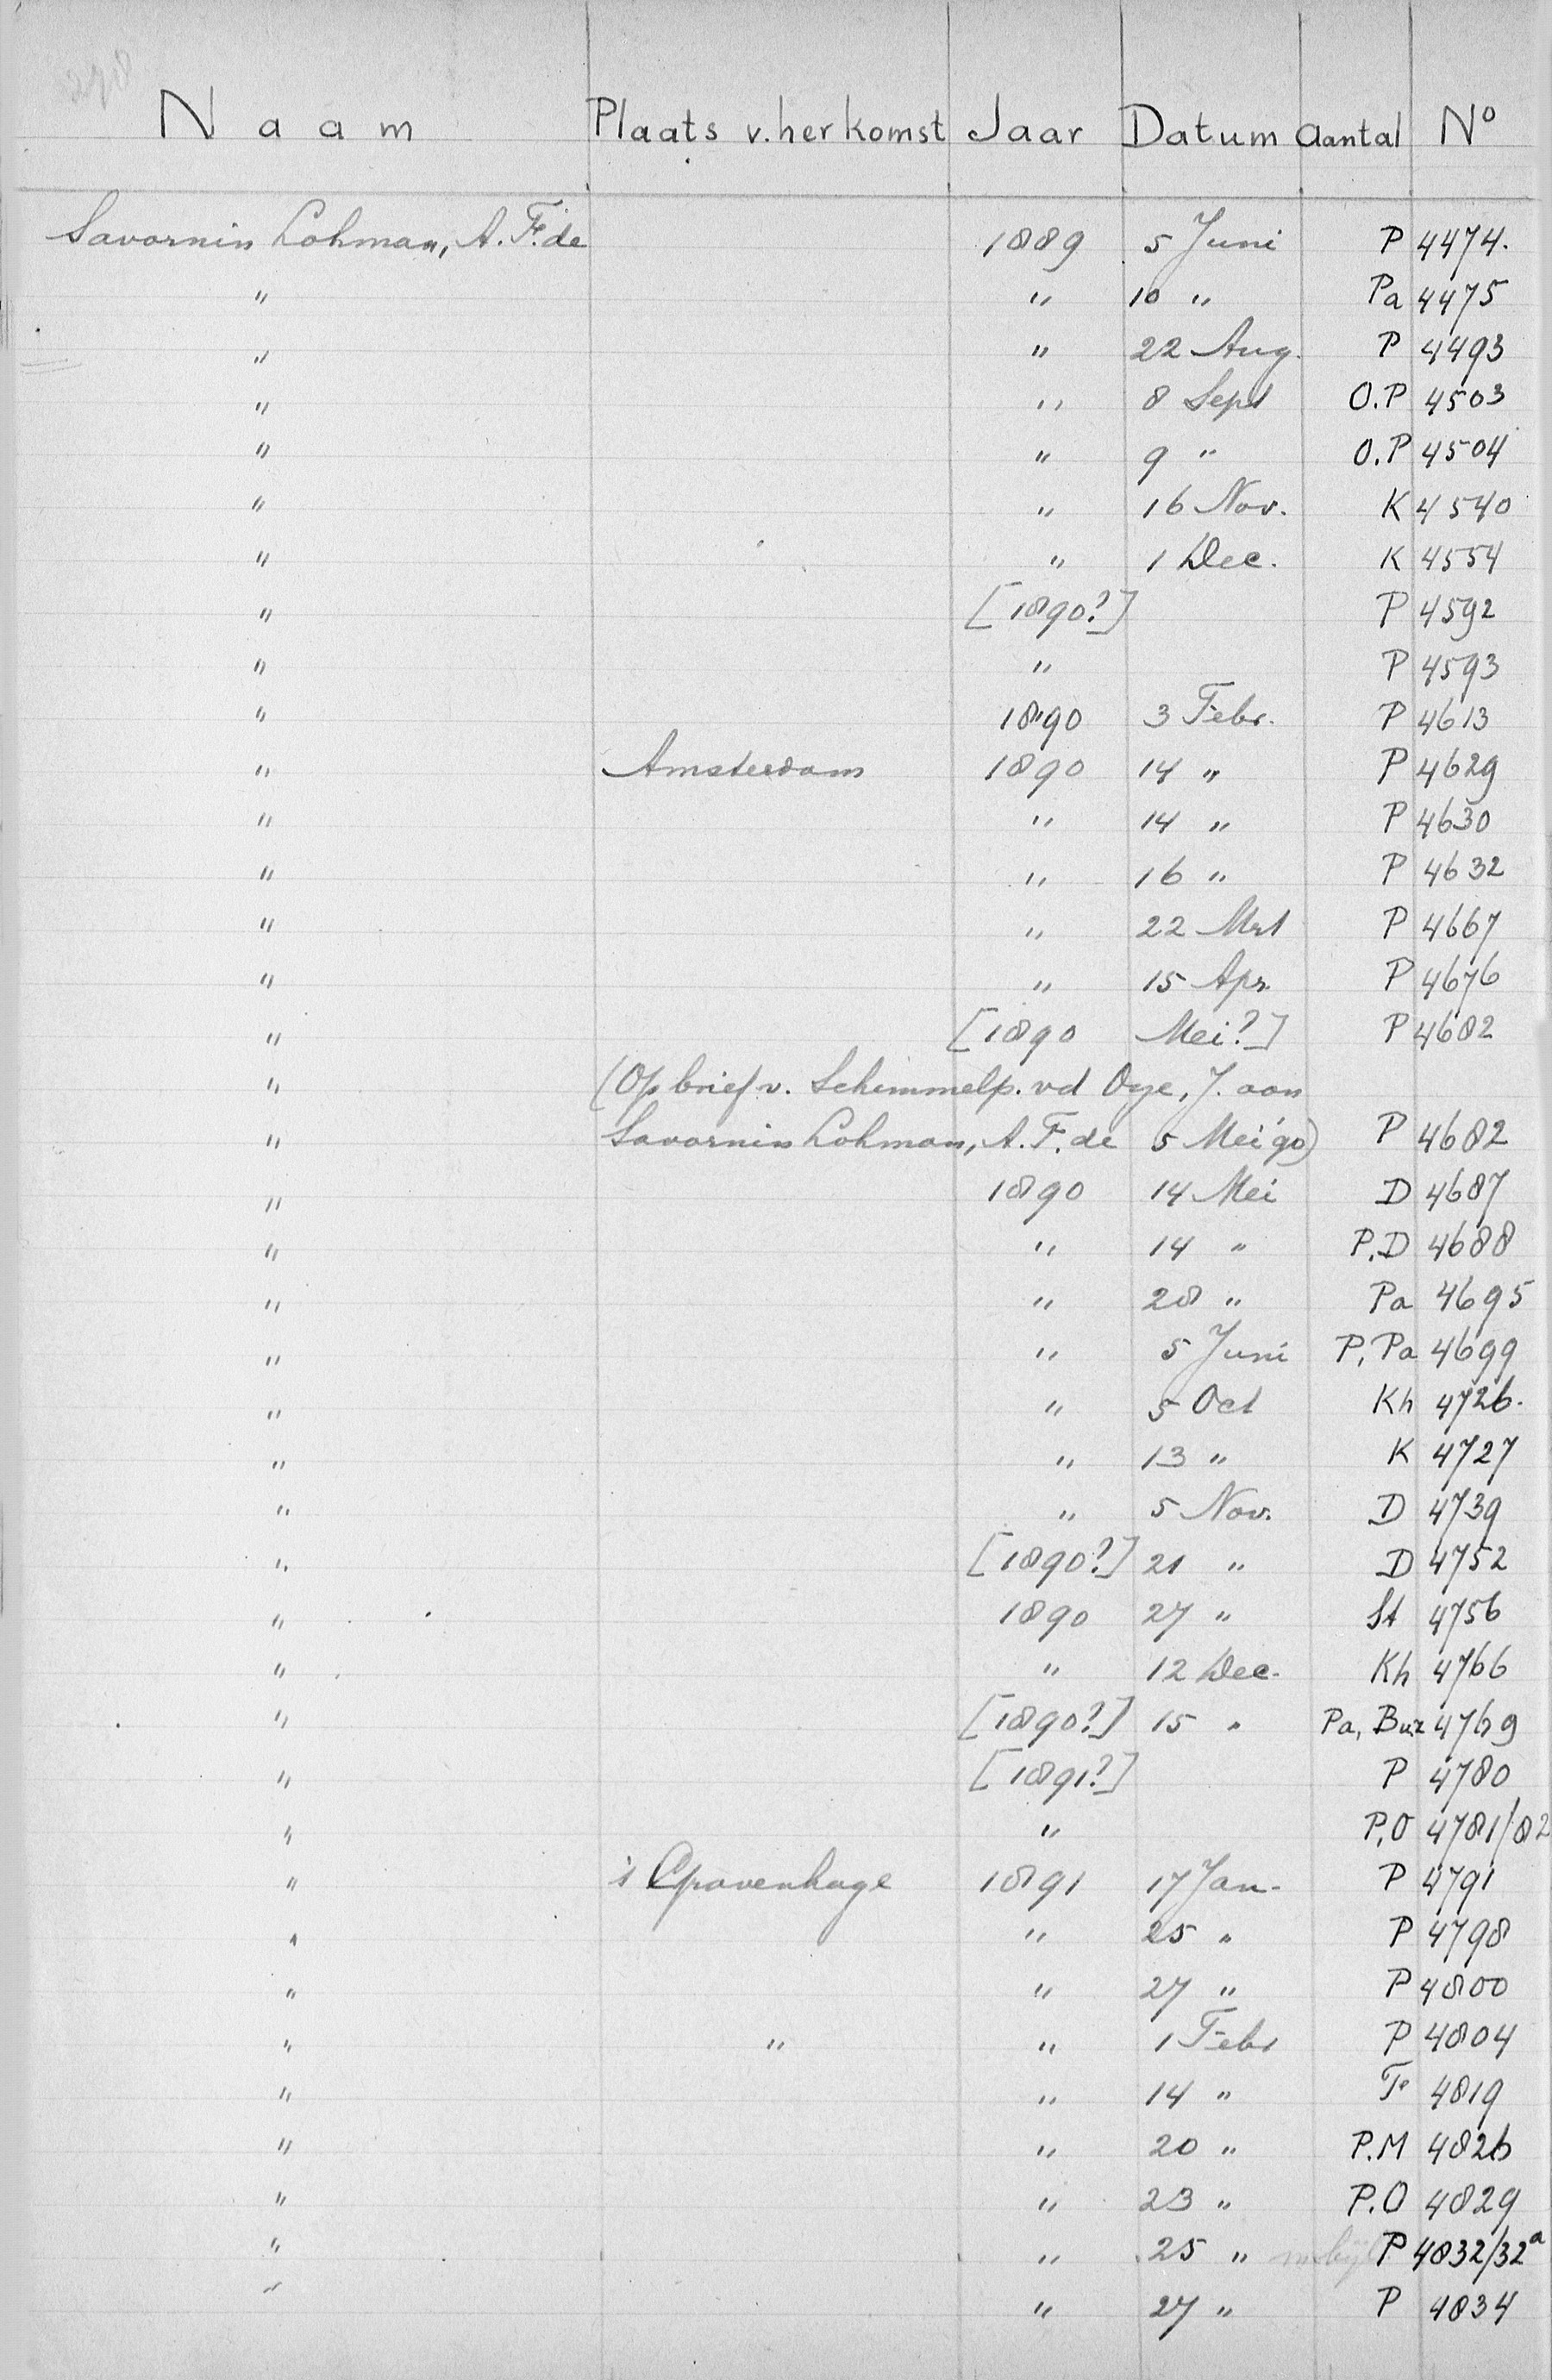 278
Naam Plaats v. herkomst Jaar Datum Aantal No
Savornin Lohman, A. F. de 1889 5 Juni P 4474.
" " 10 " Pa 4475
" " 22 Aug. P 4493
" " 8 Sept O.P 4503
" " 9 " O.P 4504
" " 16 Nov. K 4540
" " 1 Dec. K 4554
" [1890?] P 4592
" " P 4593
" 1890 3 Febr. P 4613
" Amsterdam 1890 14 " P 4629
" " 14 " P 4630
" " 16 " P 4632
" " 22 Mrt P 4667
" " 15 Apr. P 4676
" [1890 Mei?] P 4682
" (Op brief v. Schimmelp. vd Oye, J. aan
" Savornin Lohman, A. F. de 5 Mei '90) P 4682
" 1890 14 Mei D 4687
" " 14 " P.D 4688
" " 28 " Pa 4695
" " 5 Juni P, Pa 4699
" " 5 Oct Kh 4726.
" " 13 " K 4727
" " 5 Nov. D 4739
" [1890?] 21 " D 4752
" 1890 27 " St 4756
" " 12 Dec. Kh 4766
" [1890?] 15 " Pa, Buz 4769
" [1891?] P 4780
" " P,O 4781/82
" 's Gravenhage 1891 17 Jan. P 4791
" " 25 " P 4798
" " 27 " P 4800
" " " 1 Febr P 4804
" " 14 " F 4819
" " 20 " P.M 4826
" " 23 " P.O 4829
" " 25 " P 4832/32a
" " 27 " P 4834